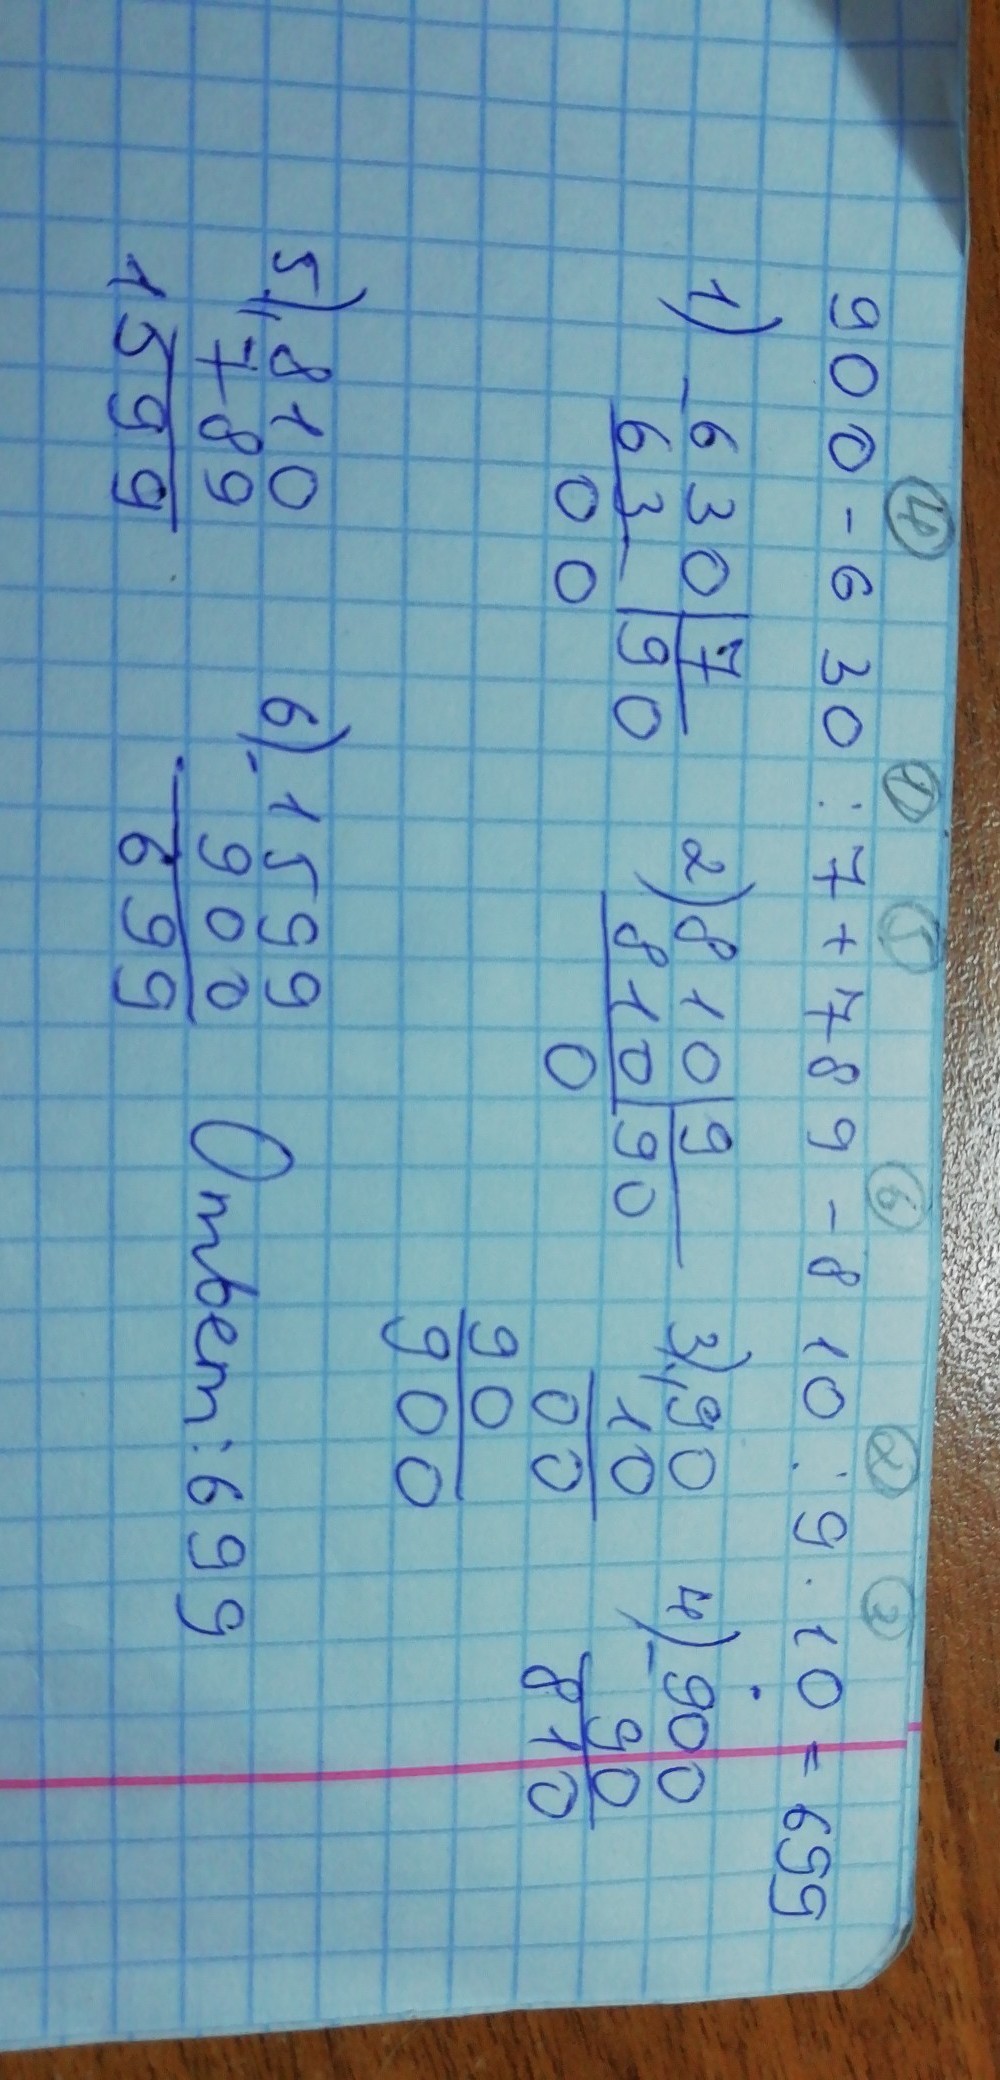 ④ ① ⑤ ⑥ ② ③
900-630:7+789-810:9·10=699
1) _630|7 2) 810|9 3) ×90 4) _900
63 |90 810|90 10 90
00 0 00 810
90
900
5) +810 6) -1599
789 900
1599 699 Ответ: 699